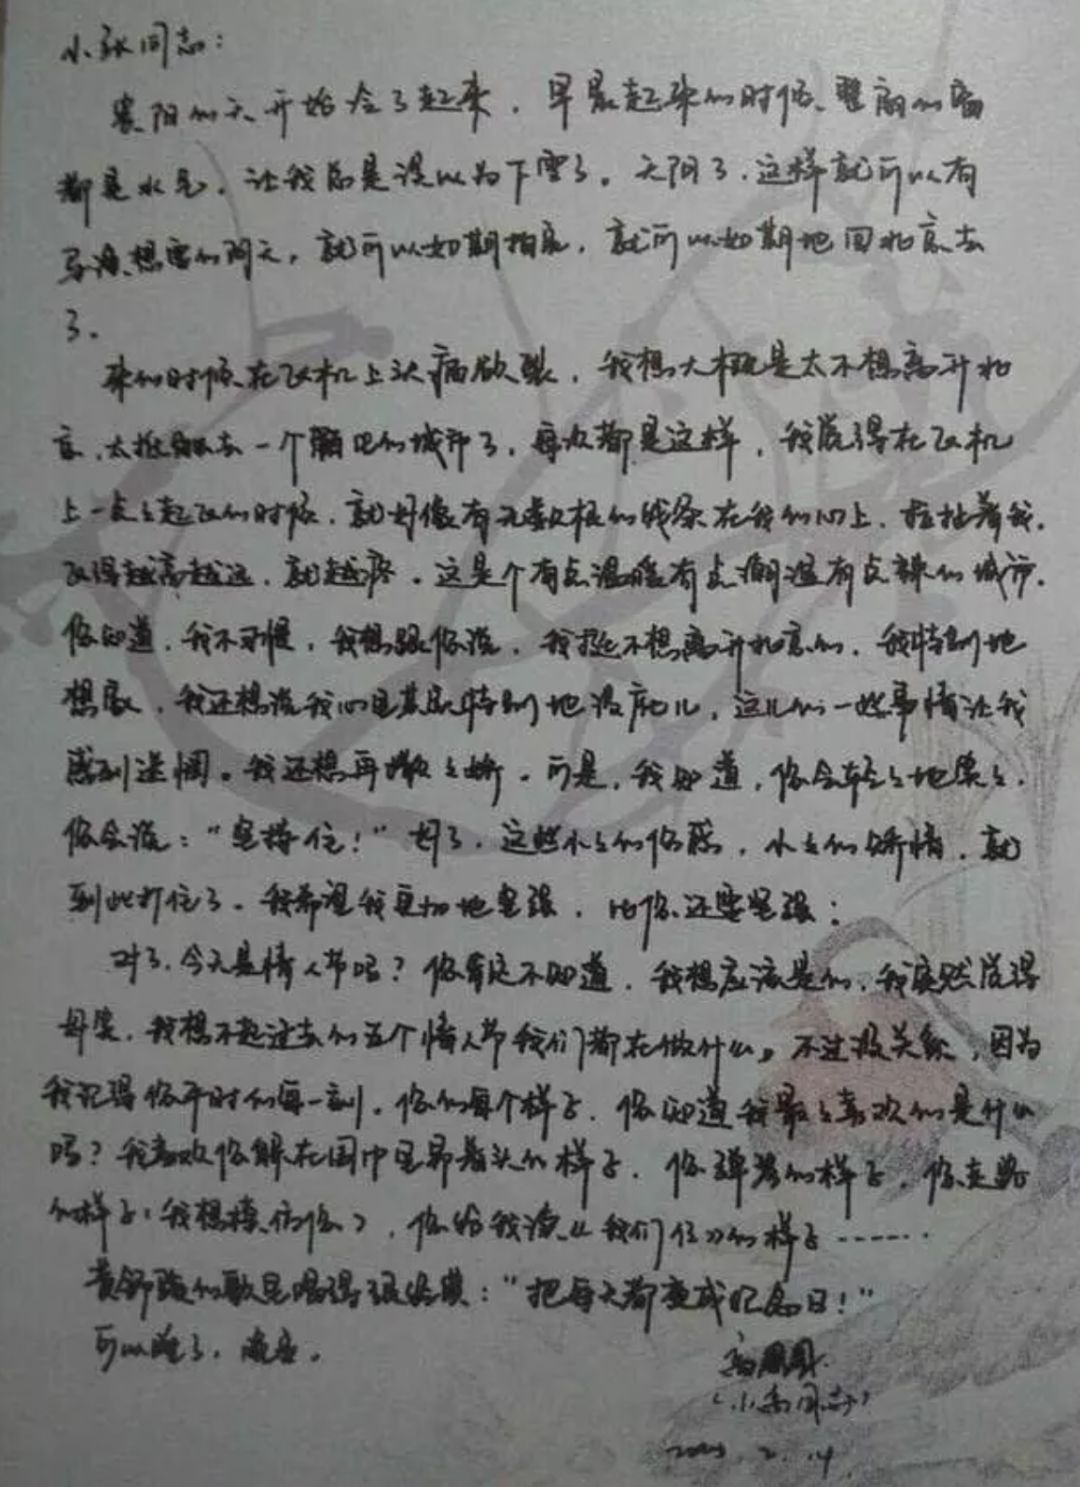 小张同志：
贵阳的天开始冷了起来，早晨起来的时候，整扇的窗
都是水气，让我总是误以为下雪了。天阴了，这样就可以有
导演想要的阴天，就可以如期拍完，就可以如期地回北京去
了。
来的时候在飞机上头痛欲裂，我想大概是太不想离开北
京，太抵触去一个的城市了，每次都是这样，我觉得在飞机
上一点点起飞的时候，就好像有无数根的线条在我的心上，拉扯着我，
飞得越高越远，就越疼。这是个有点温暖有点潮湿有点辣的城市。
你知道，我不习惯，我想跟你说，我挺不想离开北京的，我特别地
想家，我还想说我心里其实特别地没底儿，这儿的一些事情让我
感到迷惘。我还想再撒撒娇。可是，我知道，你会轻轻地笑笑，
你会说：“坚持住！”好了，这些小小的伤感，小小的矫情，就
到此打住了。我希望我更加地坚强，比你还要坚强；
对了，今天是情人节吗？你肯定不知道，我想应该是的，我突然觉得
好笑，我想不起过去的五个情人节我们都在做什么，不过没关系，因为
我记得你平时的每一刻，你的每个样子，你知道我最最喜欢的是什么
吗？我喜欢你躺在围巾里昂着头的样子，你弹琴的样子，你走路
的样子（我想模仿你），你给我读《我们仨》的样子……
黄舒骏的歌里唱得很经典：“把每天都变成纪念日！”
可以睡了，晚安。
高圆圆
（小高同志）
2. 14